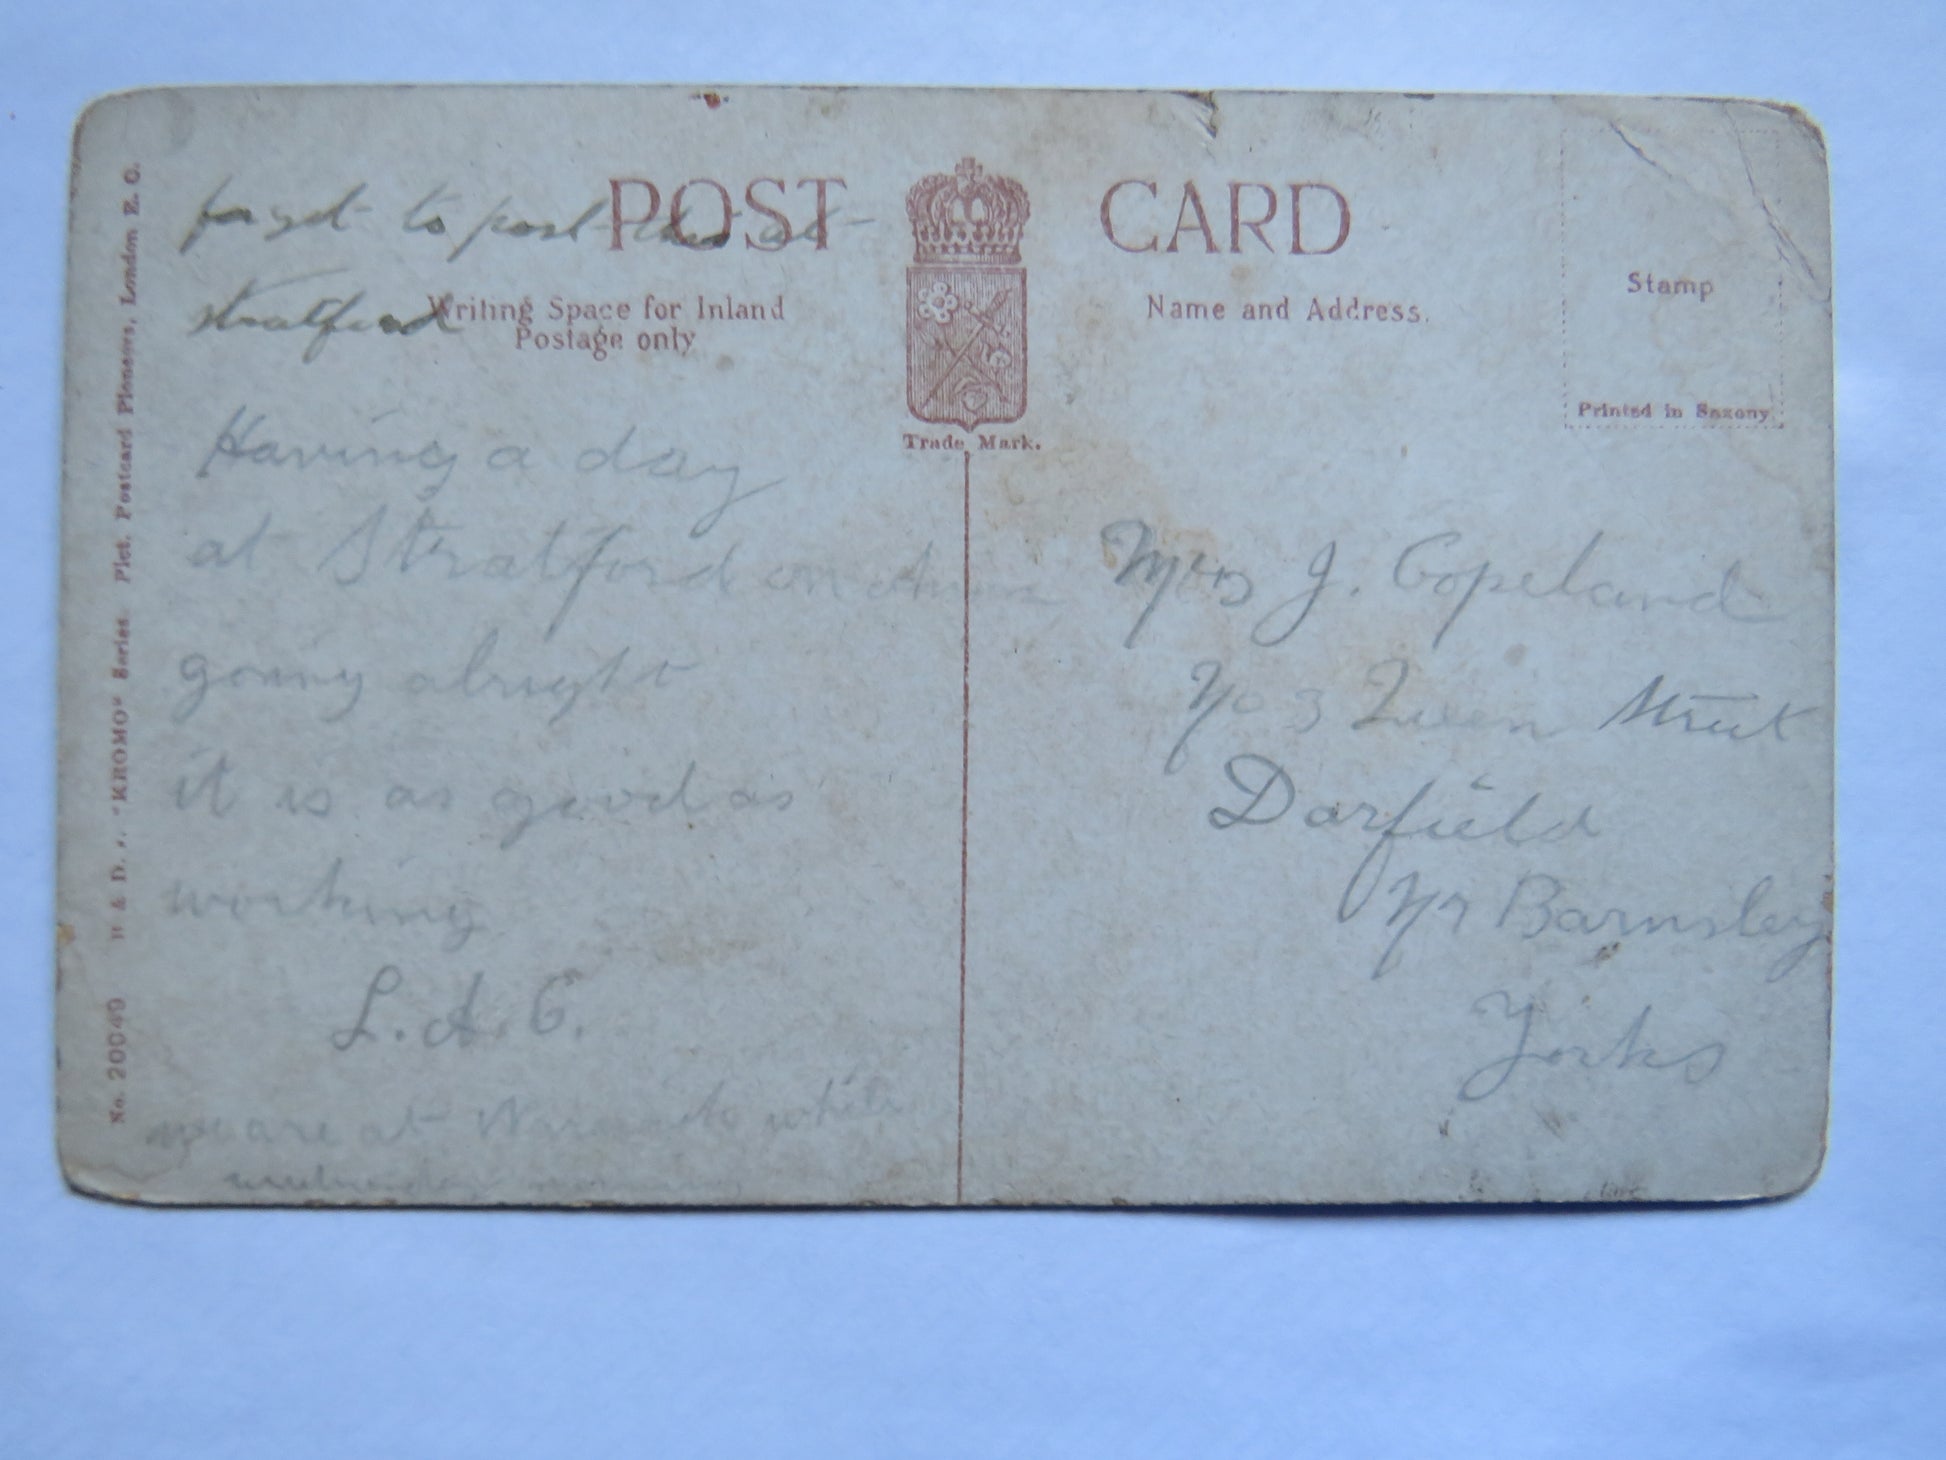 POST CARD
forget to post this at
stratford
Writing Space for Inland
Postage only
Name and Address.
Stamp
Printed in Saxony.
Trade Mark.
Having a day
at Stratford on
going alright
it is as good as
working
L. A. C.
we are at while
Mrs J. Copeland
No 3 Queen Street
Darfield
Nr Barnsley
Yorks
No. 20049 H & D. "KROMO" Series. Pict. Postcard Pioneers, London E. C.